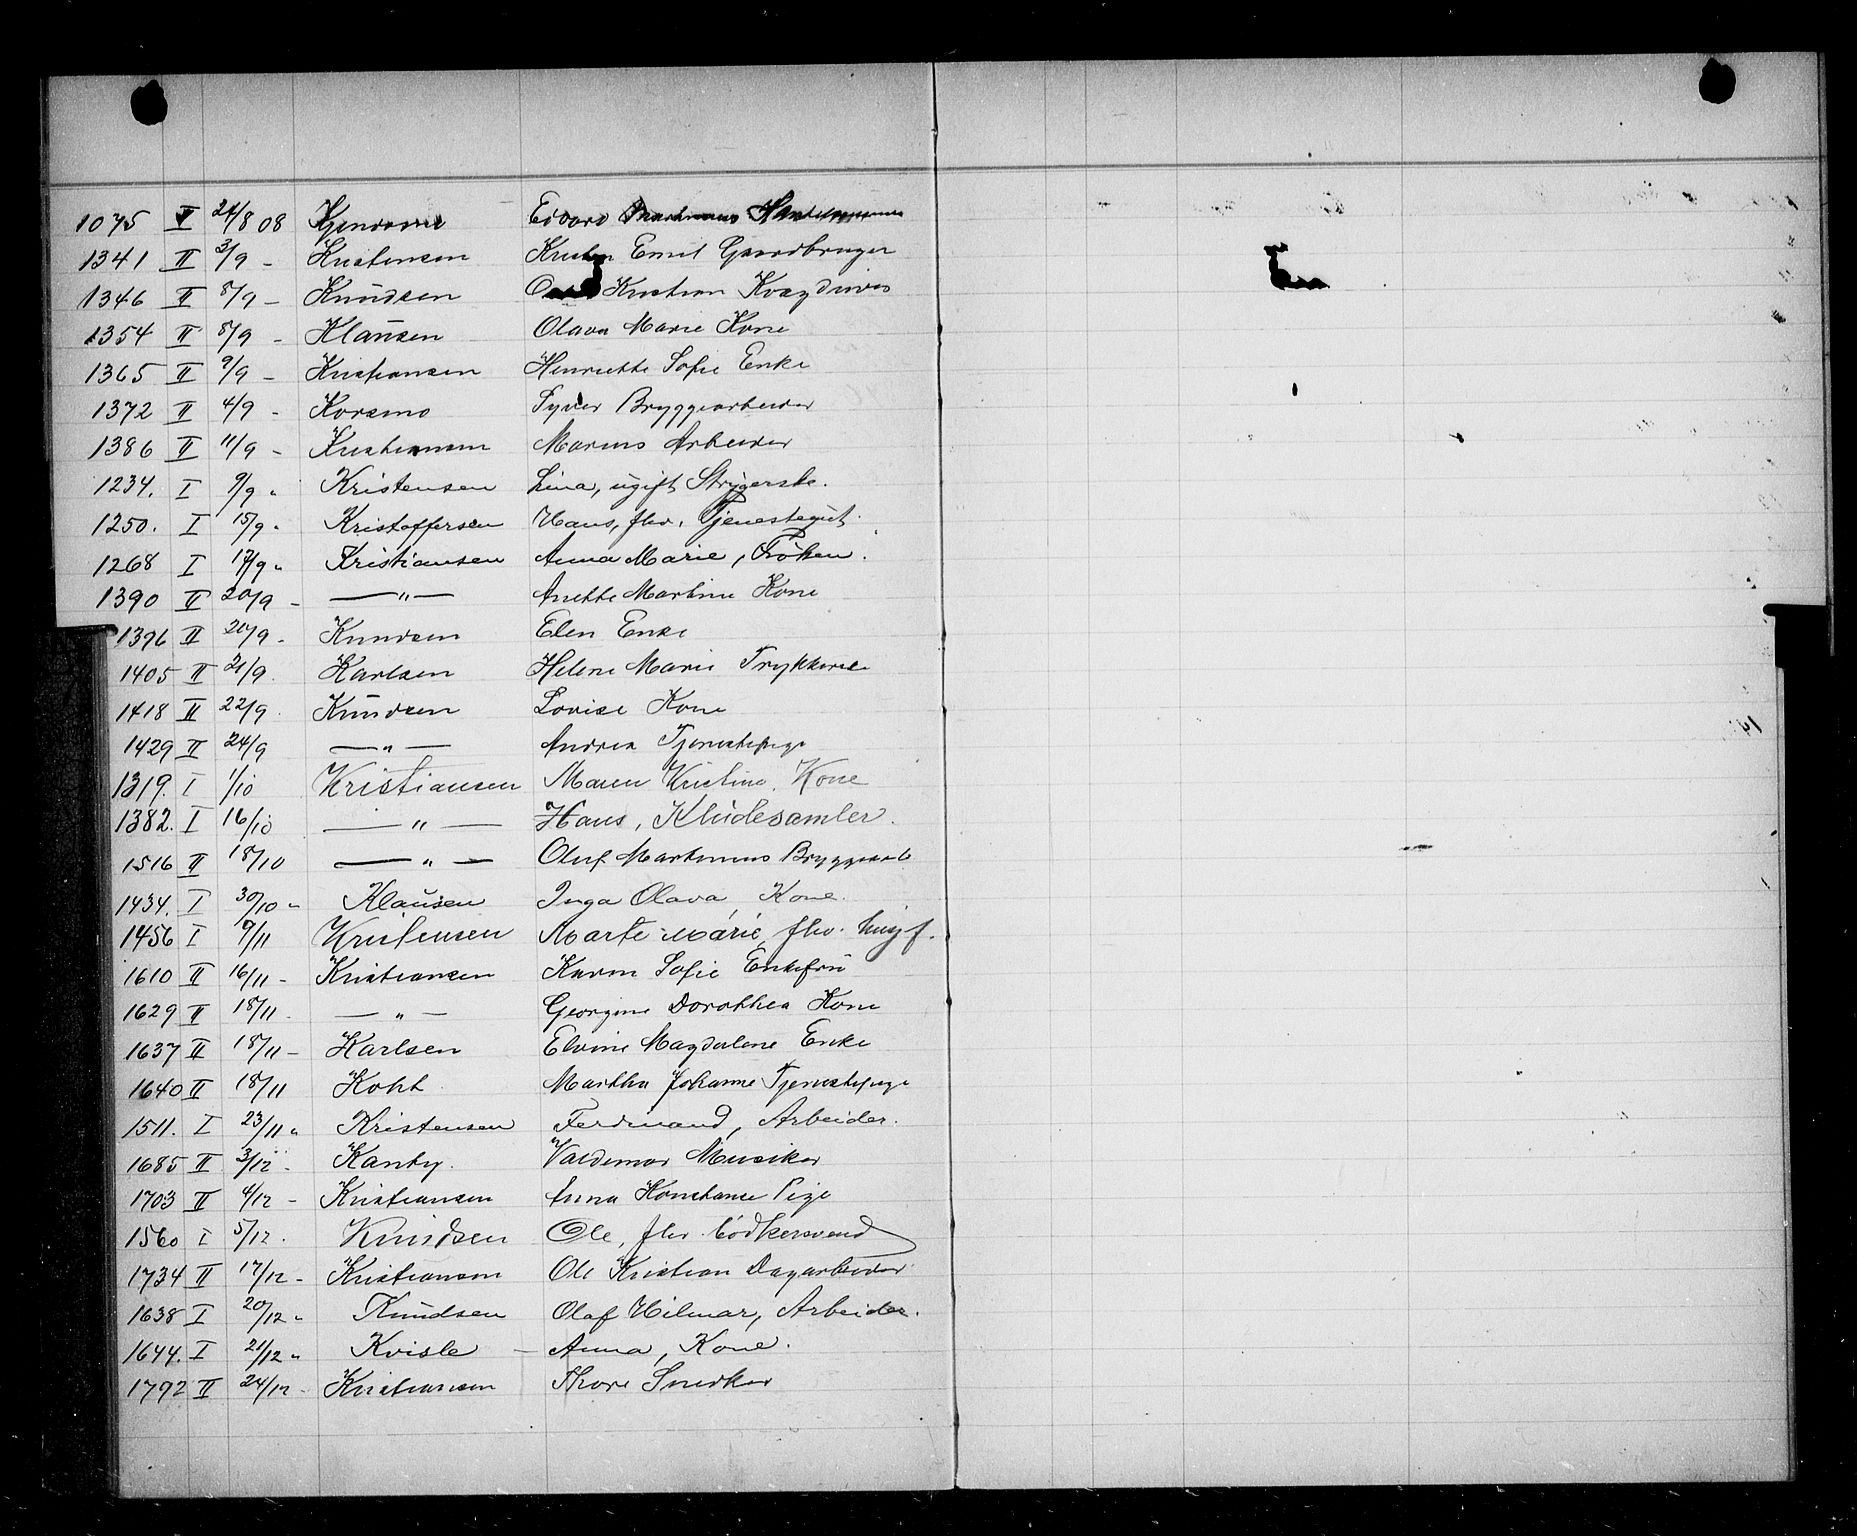 1075 V 24/8 08 Edvard
1341 II 3/9 - Kristensen Emil Gaardbruger
1346 II 8/9 - Knudsen Kristian
1354 II 8/9 - Klausen Olava Marie Kone
1365 II 9/9 - Kristiansen Henriette Sofie Enke
1372 II 4/9 - Korsmo Syver Bryggearbeider
1386 II 11/9 - Kristiansen Marius Arbeider
1234. I 9/9 " Kristensen Lina, ugift Strygerske.
1250. I 15/9 " Kristoffersen Hans, fhv. Tjenestegut.
1268 I 17/9 " Kristiansen Anna Marie, Frøken.
1390 II 20/9 - — " — Anette Martine Kone
1396 II 20/9 - Knudsen Elen Enke
1405 II 21/9. Karlsen Helene Marie Trykkerske
1418 II 22/9. Knudsen Lovise Kone
1429 II 24/9 — " — Andrea Tjenestepige
1319. I 1/10 Kristiansen Maren Kristine. Kone
1382. I 16/10 — " — Hans, Kludesamler.
1516 II 18/10 — " — Oluf Martinius Bryggearb
1434. I 30/10 " Klausen Inga Olava, Kone.
1456 I 9/11 Kristensen Marte Marie, fhv. husj.
1610 II 16/11 - Kristiansen Karen Sofie Enkefru
1629 II 18/11. — " — Georgine Dorothea Kone
1637 II 18/11 - Karlsen Elvine Magdalene Enke
1640 II 18/11 Koht. Martha Johanne Tjenestepige
1511. I 23/11 " Kristensen Ferdinand, Arbeider.
1685 II 3/12 - Kanby. Valdemar Musiker
1703 II 4/12 - Kristiansen Anna Konstanse Pige
1560 I 5/12. Knudsen Ole, fhv. bødkersvend
1734 II 17/12 - Kristiansen Ole Kristian Dagarbeider
1638 I 20/12 " Knudsen Olaf Hilmar, Arbeider.
1644. I 21/12 " Kvisle - Anna, Kone.
1792 II 24/12 - Kristiansen Thore Snedker